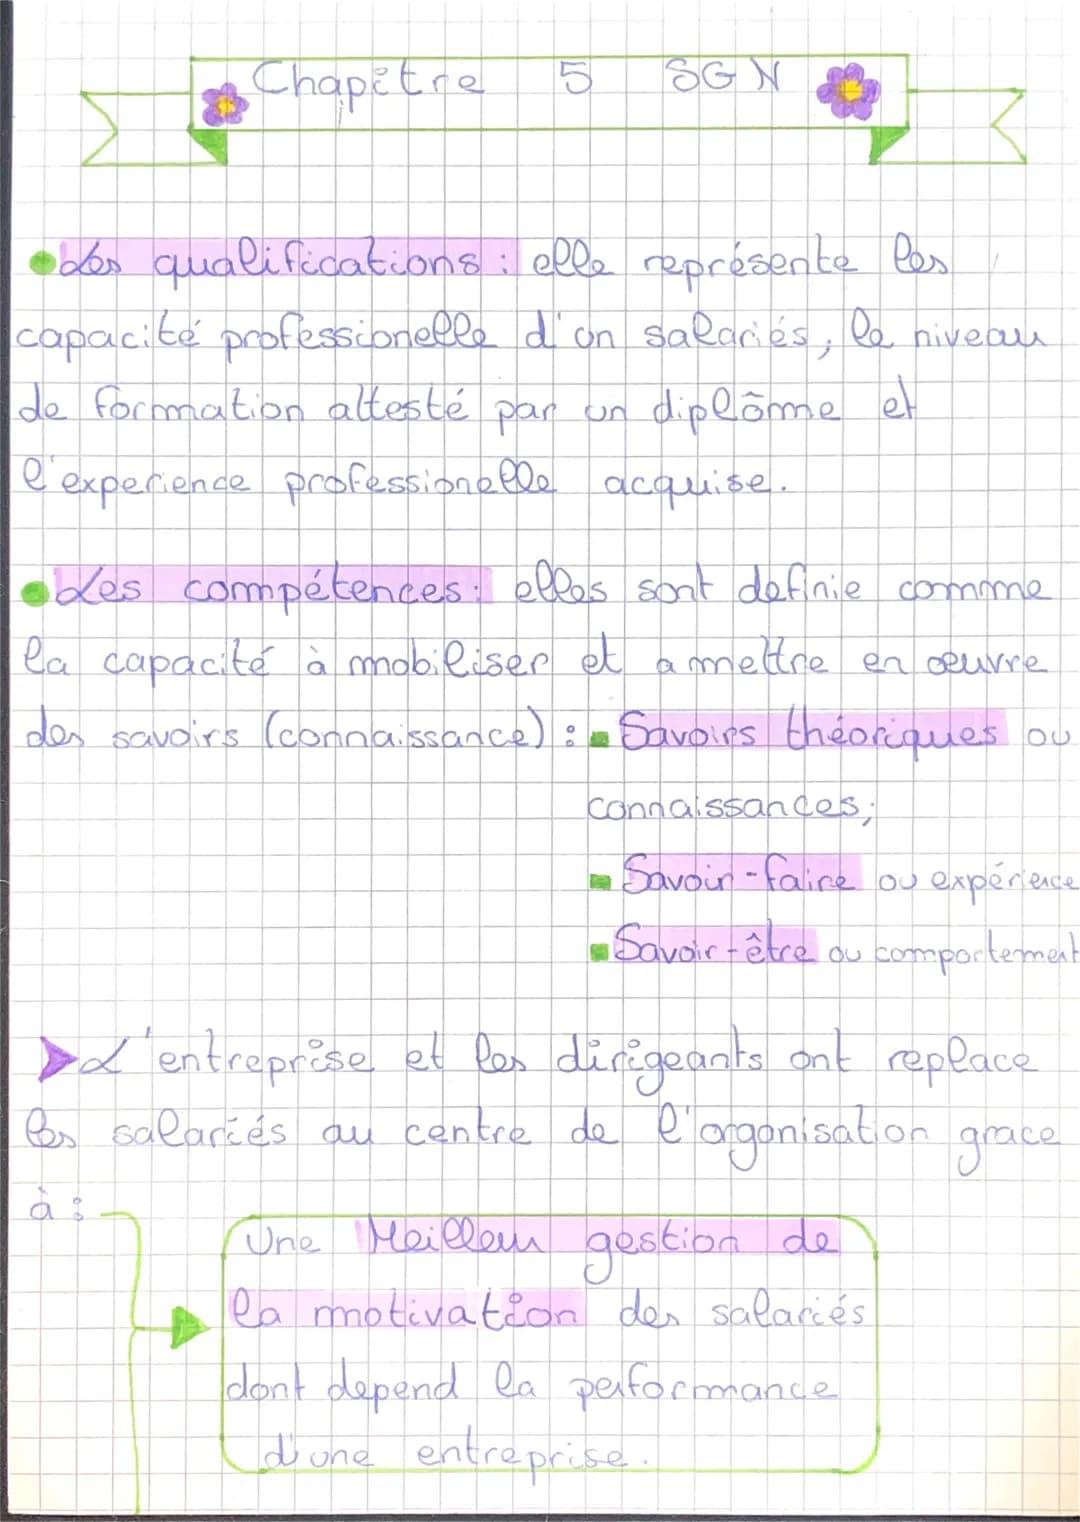 Chapitre 5 SGN
Les qualifications : elle représente les
capacité professionelle d'un salariés, le niveau
de formation attesté par un diplôme et
l'experience professionelle acquise.
Les compétences: elles sont definie comme
la capacité à mobiliser et a mettre en œuvre
des savoirs (connaissance) : Savoirs théoriques ou
connaissances;
Savoir-faire ou expérience
Savoir-être ou comportement
L'entreprise et les dirigeants ont replace
les salariés au centre de l'organisation grace
à :
Une Meilleur gestion de
la motivation des salariés
dont depend la performance
d'une entreprise.